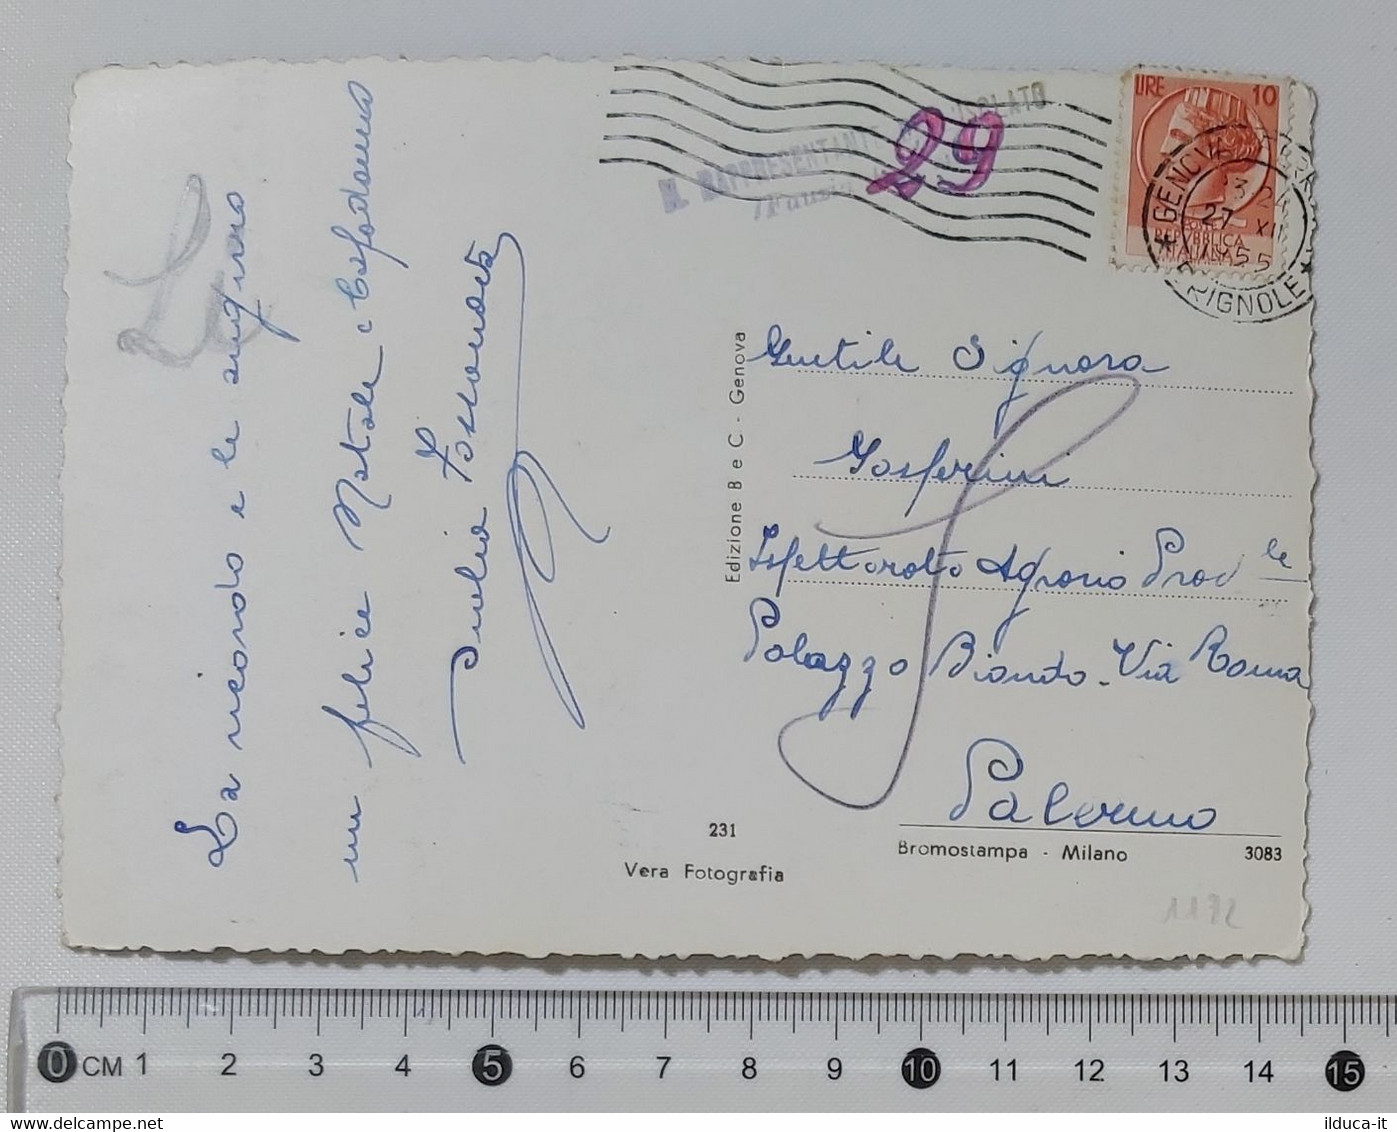 La ricordo e le auguro
un felice Natale e Capodanno
LIRE 10
REPUBBLICA
ITALIANA
GENOVA
27 XII
1955
BRIGNOLE
IL RAPPRESENTANTE
29
Edizione B e C - Genova
Gentile Signora
Gosferini
Ispettorato Agrario Prov le
Palazzo Biondo - Via Roma
Palermo
231
Vera Fotografia
Bromostampa - Milano 3083
1172
0 CM 1 2 3 4 5 6 7 8 9 10 11 12 13 14 15
ilduca-it